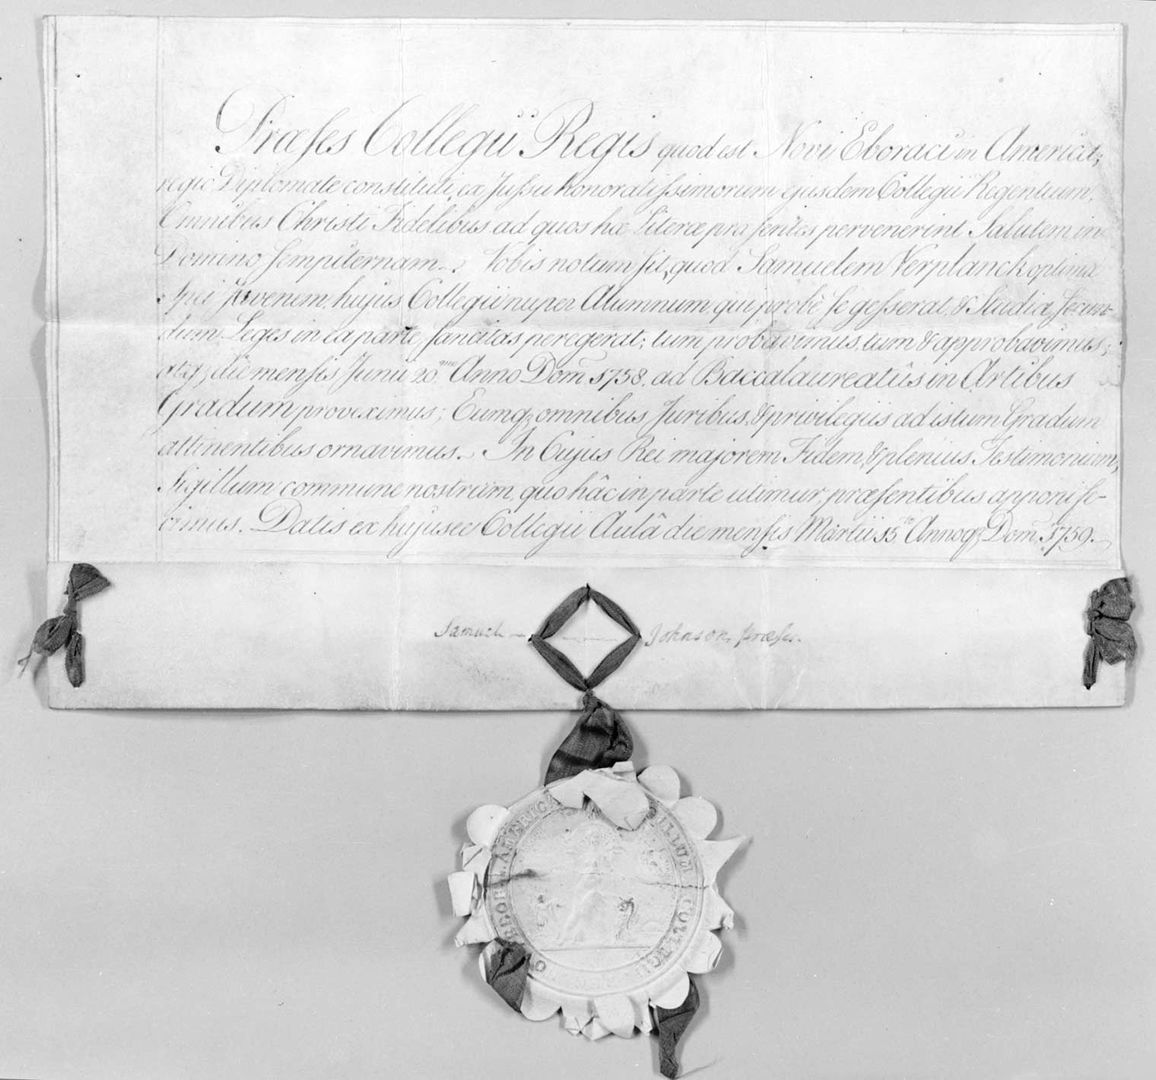 Præses Collegii Regis quod est Novi Eboraci in America,
regio Diplomate constituti, ex Jussu honoratissimorum ejusdem Collegii Regentium,
Omnibus Christi Fidelibus ad quos hæ Literæ præsentes pervenerint Salutem in
Domino sempiternam. Vobis notum sit, quod Samuelem Verplanck optimæ
Spei Juvenem, hujus Collegii nuper Alumnum, qui probè se gesserat, & Studia secun-
dum Leges in ea parte sancitas peregerat; tum probavimus, tum & approbavimus;
atq; die mensis Junii 20.mo Anno Dom. 1758. ad Baccalaureatûs in Artibus
Gradum proveximus; Eumq; omnibus Juribus, & privilegiis ad istum Gradum
attinentibus ornavimus. In Cujus Rei majorem Fidem, & plenius Testimonium,
Sigillum commune nostrum, quo hâc in parte utimur, præsentibus apponi fe-
cimus. Datis ex hujusce Collegii Aulâ die mensis Martii 15to Annoq; Dom. 1759.
Samuel Johnson, Præses.
SIGILLUM COLLEGII EBOR AMERICA